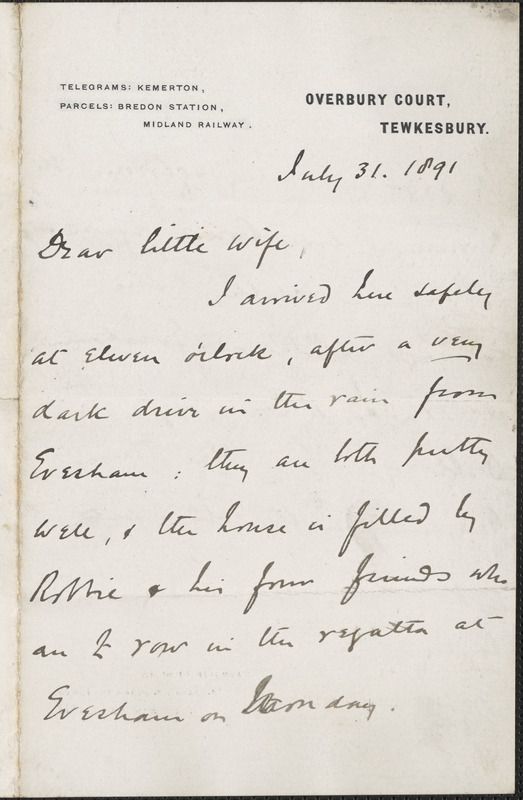 TELEGRAMS: KEMERTON,
PARCELS: BREDON STATION,
MIDLAND RAILWAY.
OVERBURY COURT,
TEWKESBURY.
July 31. 1891
Dear little wife,
I arrived here safely
at eleven o'clock, after a very
dark drive in the rain from
Evesham: they are both pretty
well, & the house is filled by
Robbie & his four friends who
are to row in the regatta at
Evesham on Monday.